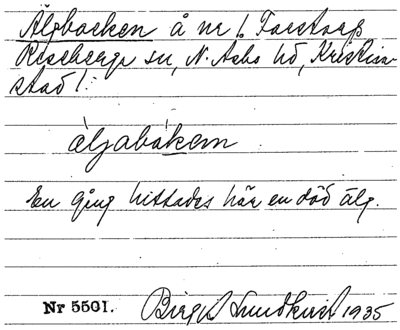 Älgbacken å nr 1 Forstorp
Riseberga sn, N. Asbo hd, Kristian-
stad l.
äljabakem
En gång hittades här en död älg.
Nr 5501. Birgit Lundkvist 1935